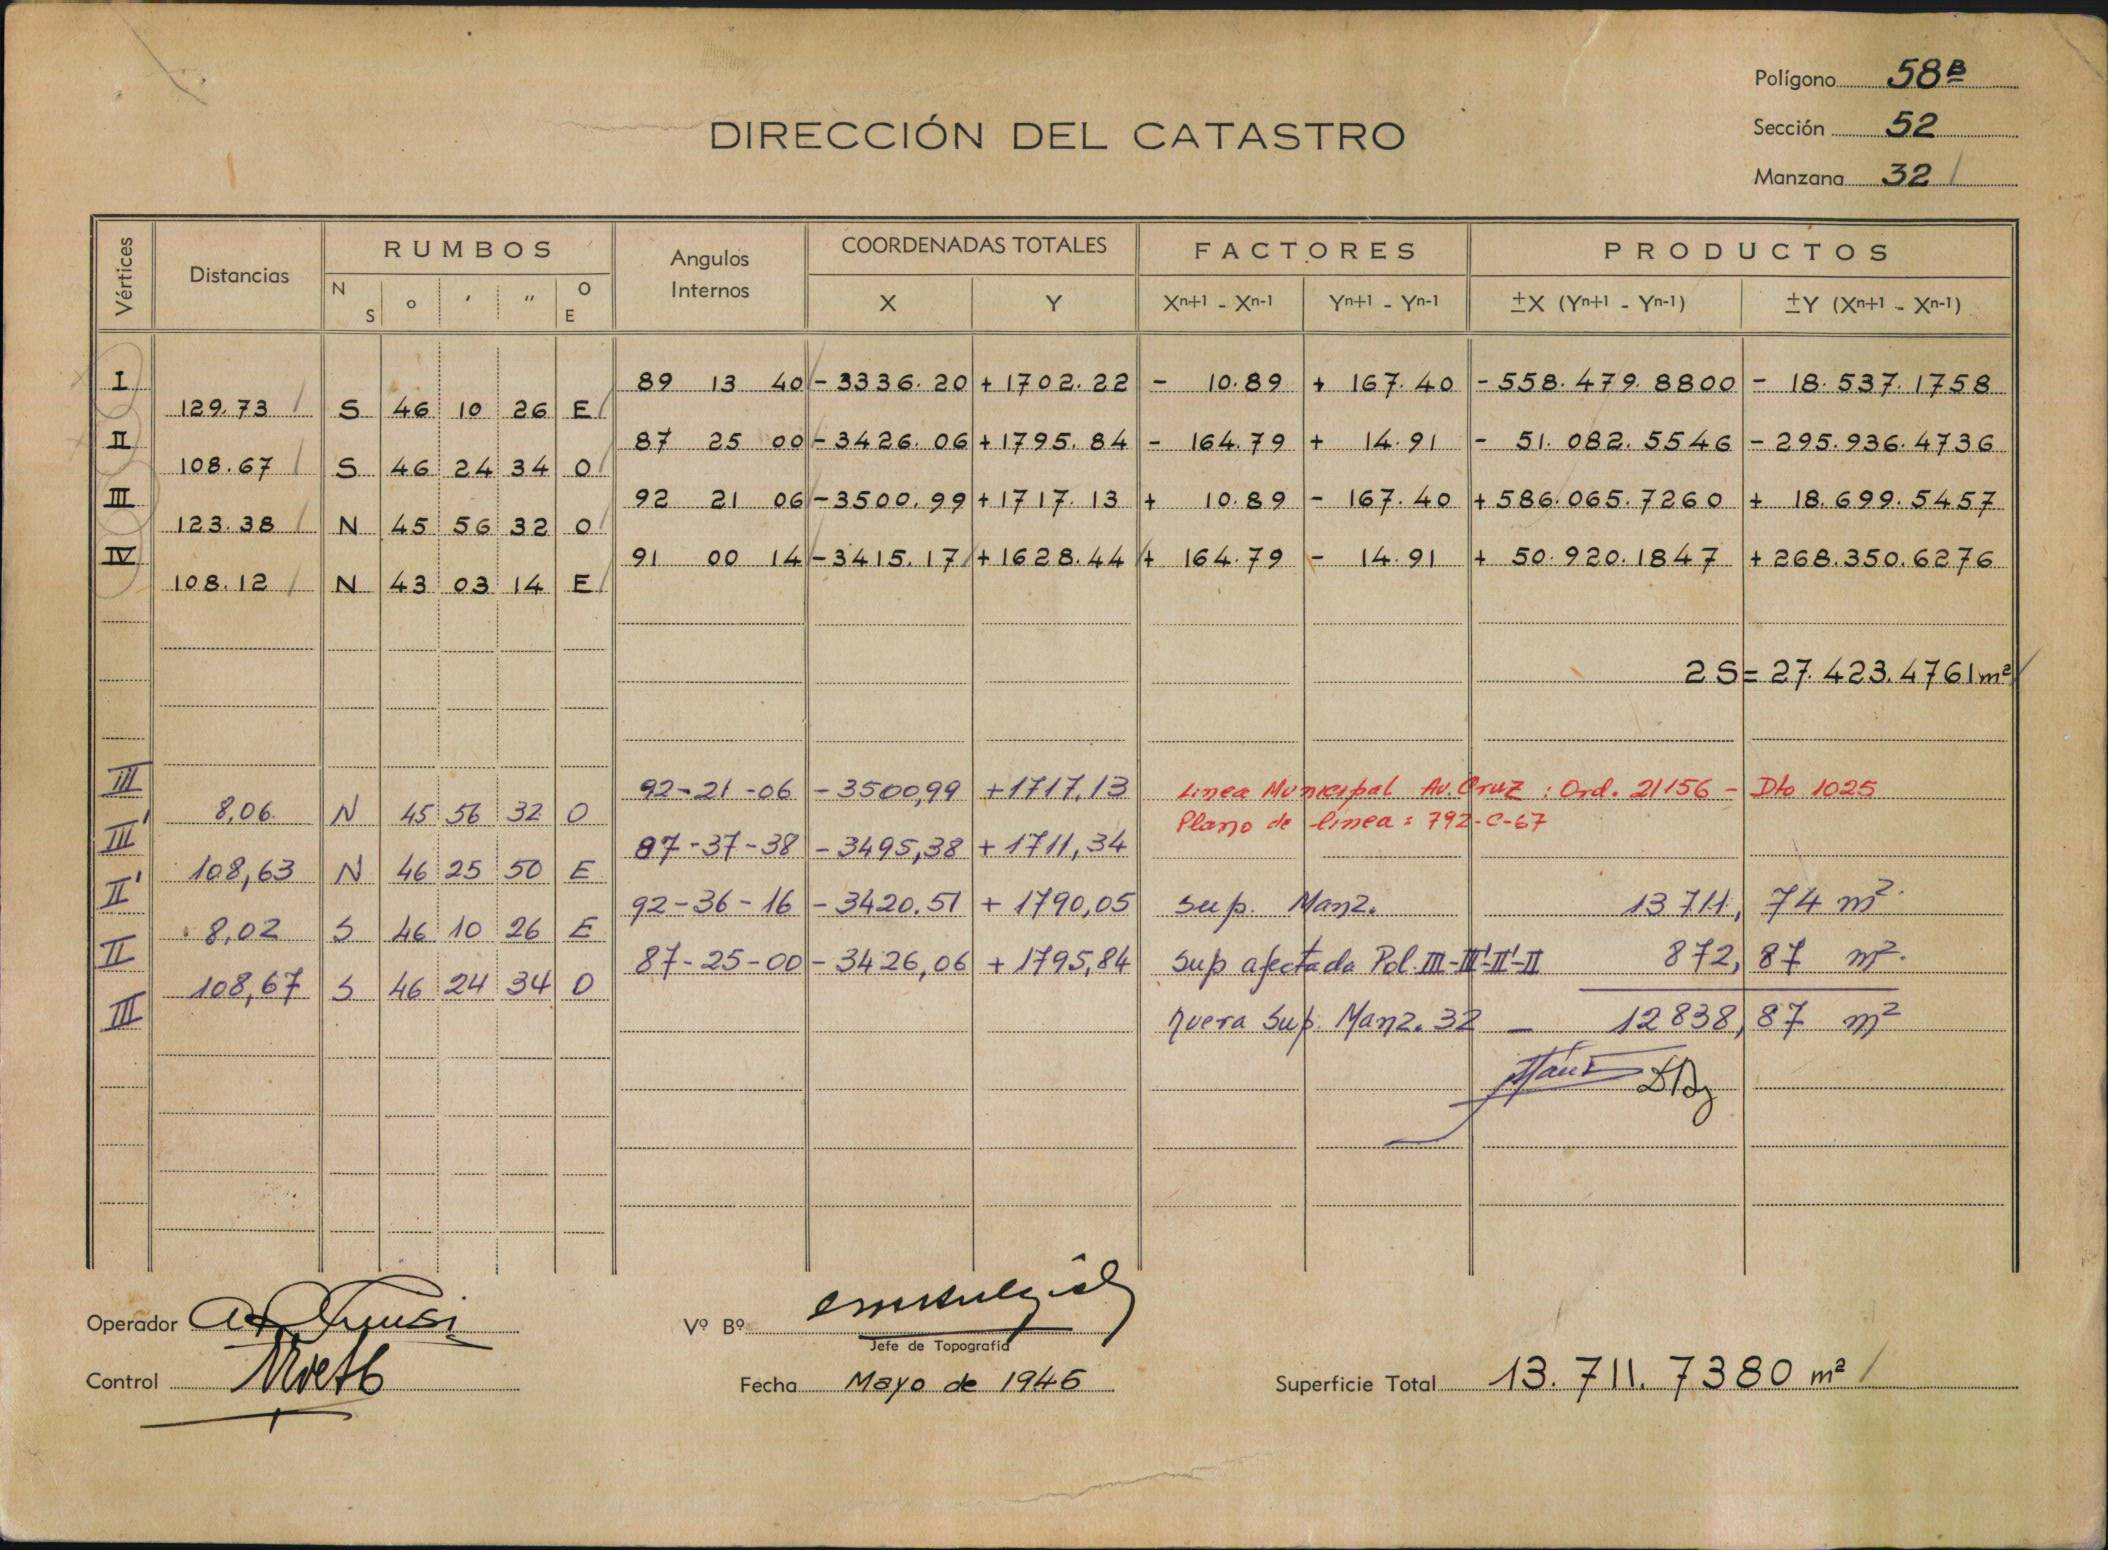 Polígono 58 B
Sección 52
Manzana 32
DIRECCIÓN DEL CATASTRO
Vértices Distancias RUMBOS Angulos Internos COORDENADAS TOTALES FACTORES PRODUCTOS
N S ° ' " O E X Y Xn+1 - Xn-1 Yn+1 - Yn-1 ±X (Yn+1 - Yn-1) ±Y (Xn+1 - Xn-1)
I 89 13 40 -3336.20 +1702.22 - 10.89 + 167.40 -558.479.8800 - 18.537.1758
129.73 S 46 10 26 E
II 87 25 00 -3426.06 +1795.84 - 164.79 + 14.91 - 51.082.5546 -295.936.4736
108.67 S 46 24 34 O
III 92 21 06 -3500.99 +1717.13 + 10.89 - 167.40 +586.065.7260 + 18.699.5457
123.38 N 45 56 32 O
IV 91 00 14 -3415.17 +1628.44 + 164.79 - 14.91 + 50.920.1847 +268.350.6276
108.12 N 43 03 14 E
2S = 27.423.4761 m²
III 92-21-06 -3500,99 +1717,13 Linea Municipal Av. Cruz : Ord. 21156 - Dto 1025
8,06 N 45 56 32 O Plano de linea : 792-C-67
III' 87-37-38 -3495,38 +1711,34
108,63 N 46 25 50 E
II' 92-36-16 -3420.51 +1790,05 Sup. Manz. 13711,74 m².
8,02 S 46 10 26 E
II 87-25-00 -3426,06 +1795,84 Sup afectada Pol. III-III'-II'-II 872,87 m².
108,67 S 46 24 34 O
III Nueva Sup. Manz. 32 - 12838,87 m²
Operador
Vº Bº
Jefe de Topografía
Control
Fecha Mayo de 1946
Superficie Total 13.711.7380 m²